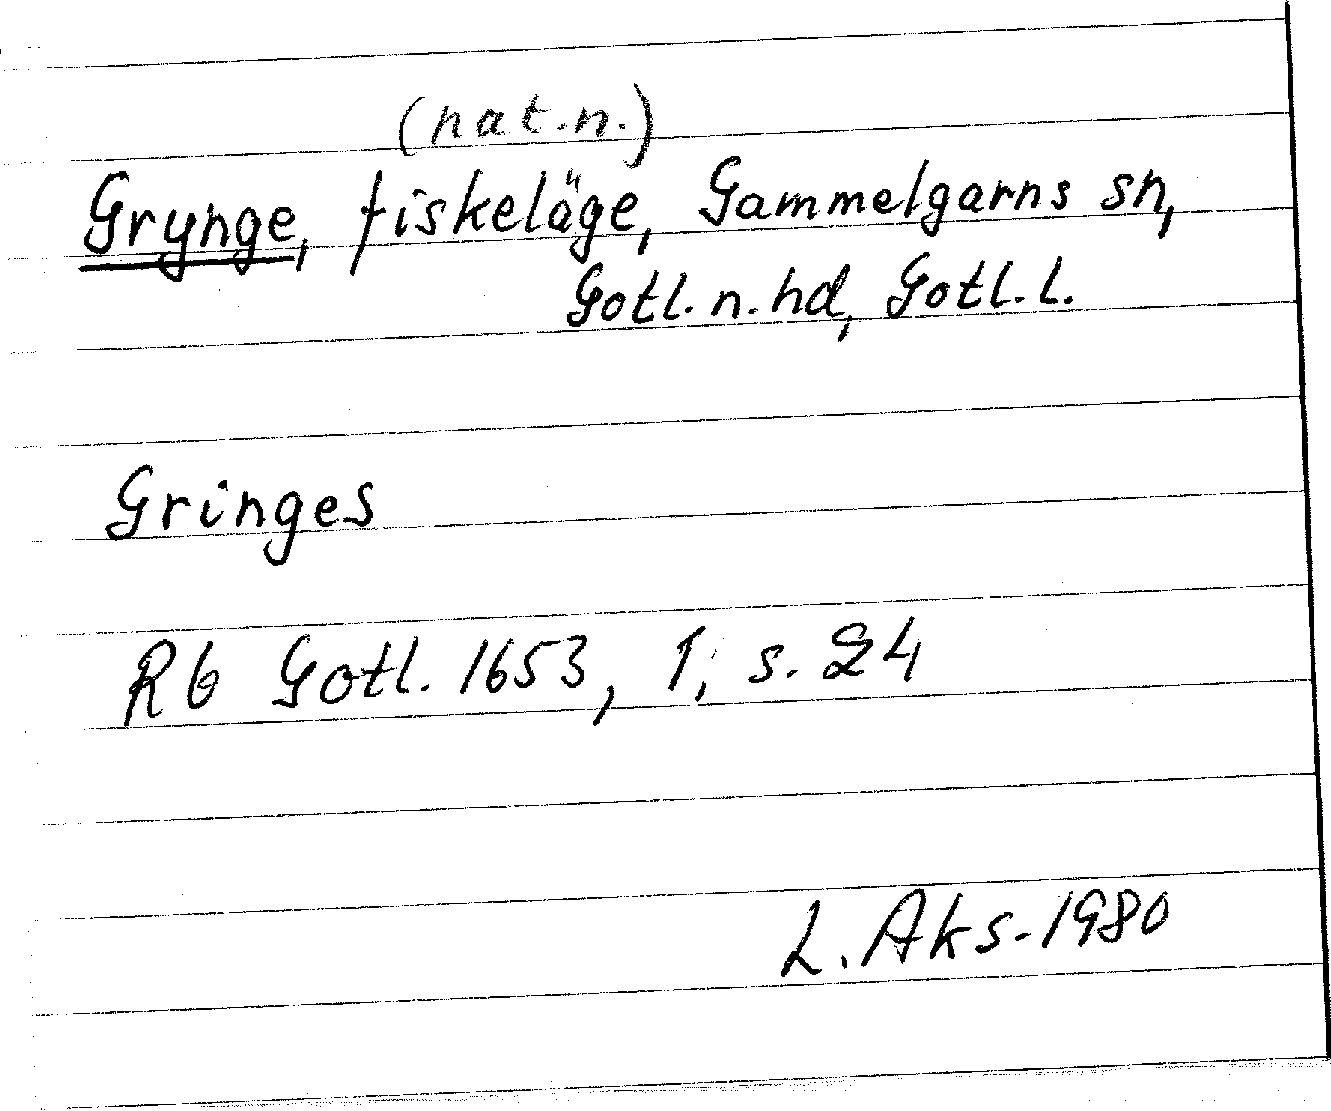 (nat.n.)
Grynge, fiskeläge, Gammelgarns sn,
Gotl. n. hd, Gotl. l.
Gringes
Rb Gotl. 1653, 1, s. 24
L. Aks-1980